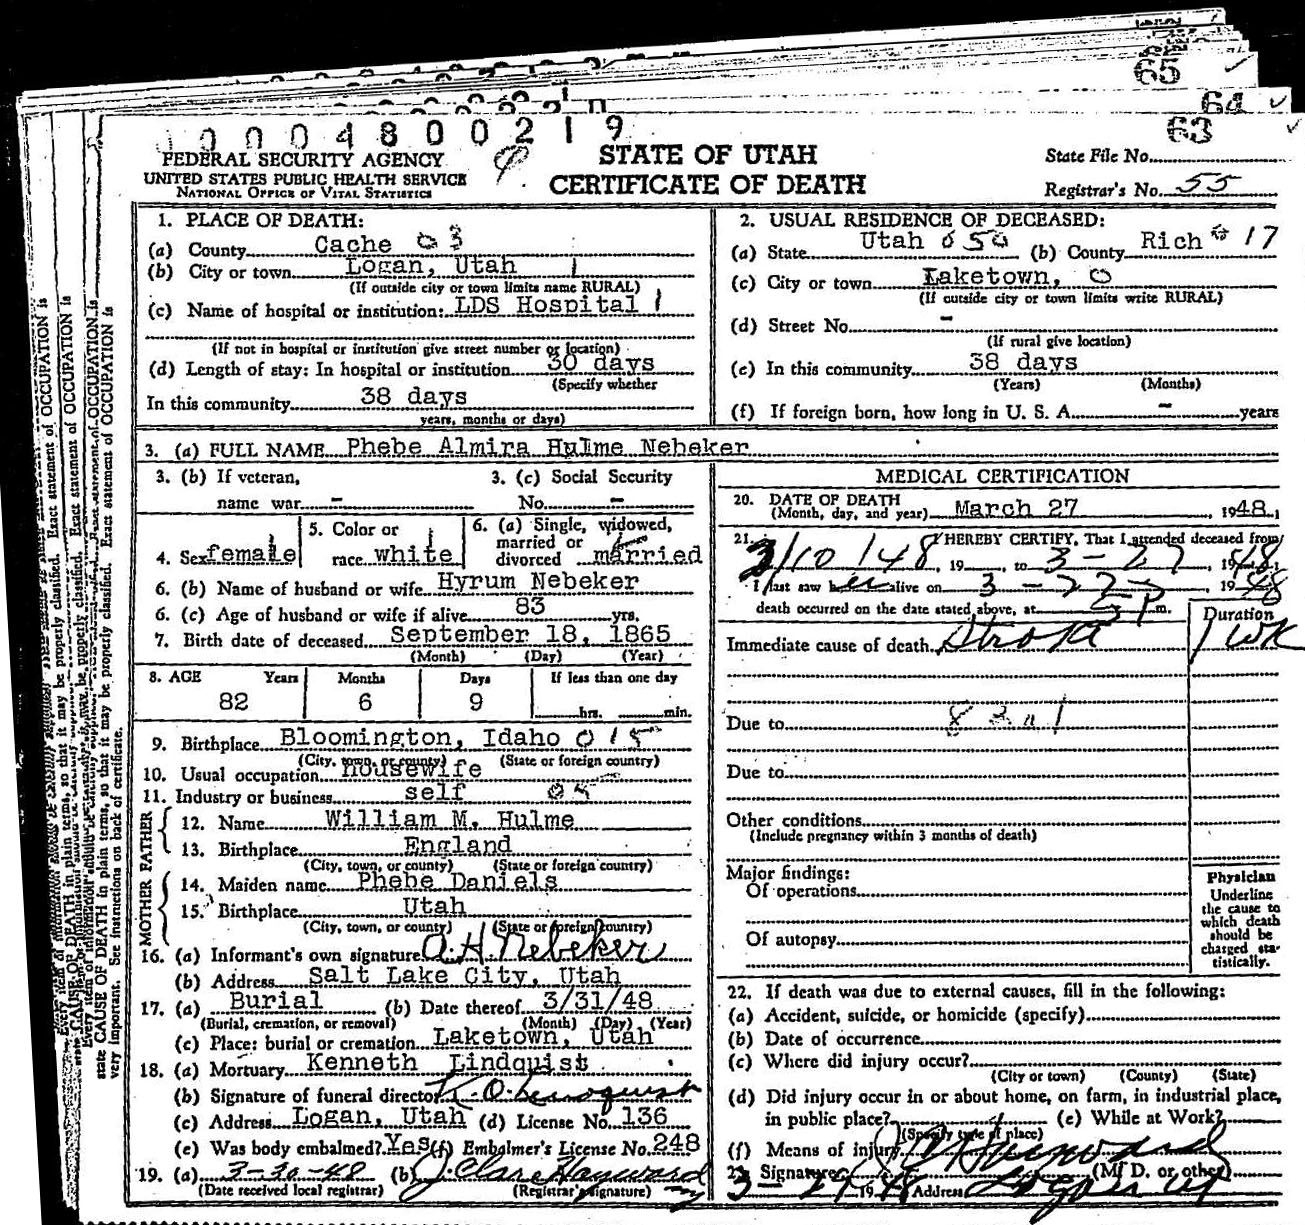 65
64
63
0 0 0 4 8 0 0 2 1 9
FEDERAL SECURITY AGENCY
UNITED STATES PUBLIC HEALTH SERVICE
NATIONAL OFFICE OF VITAL STATISTICS
STATE OF UTAH
CERTIFICATE OF DEATH
State File No.
Registrar's No. 55
1. PLACE OF DEATH:
(a) County Cache 03
(b) City or town Logan, Utah 1
(If outside city or town limits name RURAL)
(c) Name of hospital or institution: LDS Hospital 1
(If not in hospital or institution give street number or location)
(d) Length of stay: In hospital or institution 30 days
(Specify whether
In this community 38 days
years, months or days)
2. USUAL RESIDENCE OF DECEASED:
(a) State Utah 050 (b) County Rich 17
(c) City or town Laketown, 0
(If outside city or town limits write RURAL)
(d) Street No. -
(If rural give location)
(e) In this community 38 days
(Years) (Months)
(f) If foreign born, how long in U. S. A. - years
3. (a) FULL NAME Phebe Almira Hulme Nebeker
3. (b) If veteran,
name war -
3. (c) Social Security
No. -
4. Sex female
5. Color or
race white
6. (a) Single, widowed,
married or
divorced married
6. (b) Name of husband or wife Hyrum Nebeker
6. (c) Age of husband or wife if alive 83 yrs.
7. Birth date of deceased September 18, 1865
(Month) (Day) (Year)
8. AGE Years Months Days If less than one day
82 6 9 hrs. min.
9. Birthplace Bloomington, Idaho 015
(City, town, or county) (State or foreign country)
10. Usual occupation housewife
11. Industry or business self
MOTHER FATHER
12. Name William M. Hulme
13. Birthplace England
(City, town, or county) (State or foreign country)
14. Maiden name Phebe Daniels
15. Birthplace Utah
(City, town, or county) (State or foreign country)
16. (a) Informant's own signature A. H. Nebeker
(b) Address Salt Lake City, Utah
17. (a) Burial (b) Date thereof 3/31/48
(Burial, cremation, or removal) (Month) (Day) (Year)
(c) Place: burial or cremation Laketown, Utah
18. (a) Mortuary Kenneth Lindquist
(b) Signature of funeral director K. O. Lindquist
(c) Address Logan, Utah (d) License No. 136
(e) Was body embalmed? Yes (f) Embalmer's License No. 248
19. (a) 3-30-48 (b) J. Clare Hayward
(Date received local registrar) (Registrar's signature)
MEDICAL CERTIFICATION
20. DATE OF DEATH
(Month, day, and year) March 27, 1948.
21. I HEREBY CERTIFY, That I attended deceased from
3/10/48, 19 to 3-27, 1948.
I last saw her alive on 3-27, 1948
death occurred on the date stated above, at 5 P m.
Duration
Immediate cause of death Stroke 1 wk
Due to
Due to
Other conditions
(Include pregnancy within 3 months of death)
Major findings:
Of operations
Of autopsy
Physician
Underline
the cause to
which death
should be
charged sta-
tistically.
22. If death was due to external causes, fill in the following:
(a) Accident, suicide, or homicide (specify)
(b) Date of occurrence
(c) Where did injury occur?
(City or town) (County) (State)
(d) Did injury occur in or about home, on farm, in industrial place,
in public place? (e) While at Work?
(Specify type of place)
(f) Means of injury
23. Signature Hayward (M. D. or other)
Address Logan Ut
state CAUSE OF DEATH in plain terms, so that it may be properly classified. Exact statement of OCCUPATION is
very important. See instructions on back of certificate.